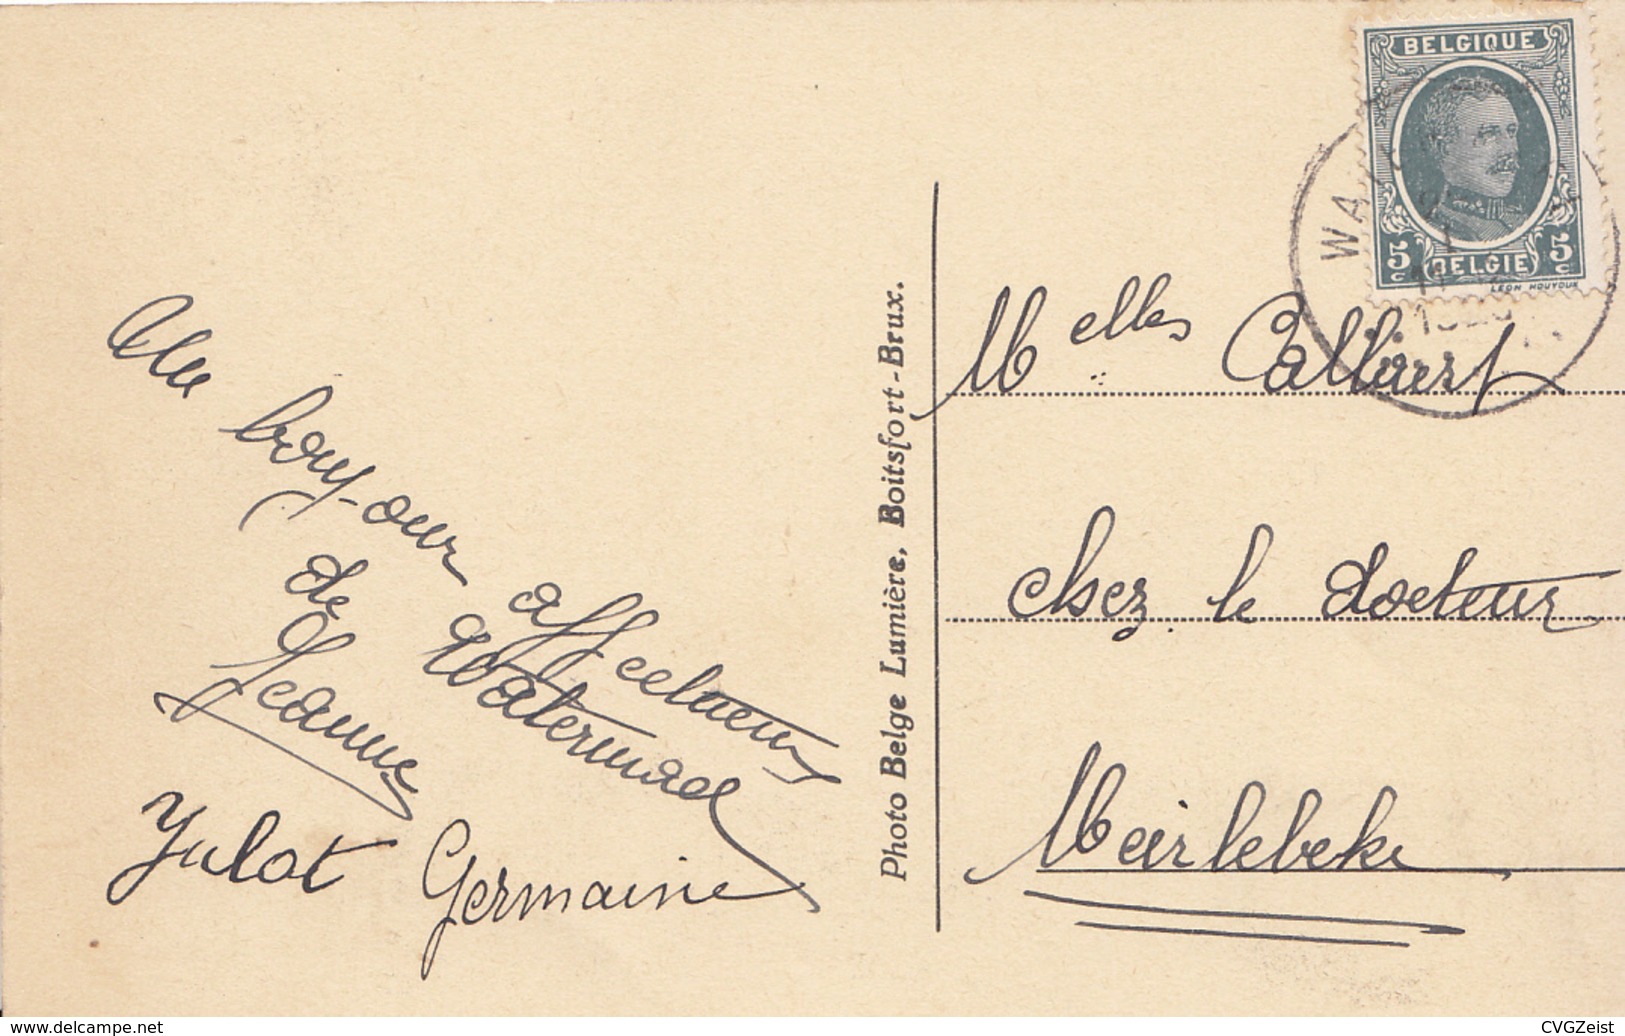 Un bonjour affectueux
de Watermael
Jeanne
Julot Germaine
Photo Belge Lumière, Boitsfort-Brux.
BELGIQUE
5c BELGIE 5c
LEON HOUYOUX
WA
Melles Callaert
chez le docteur
Meirlebeke
www.delcampe.net
CVGZeist